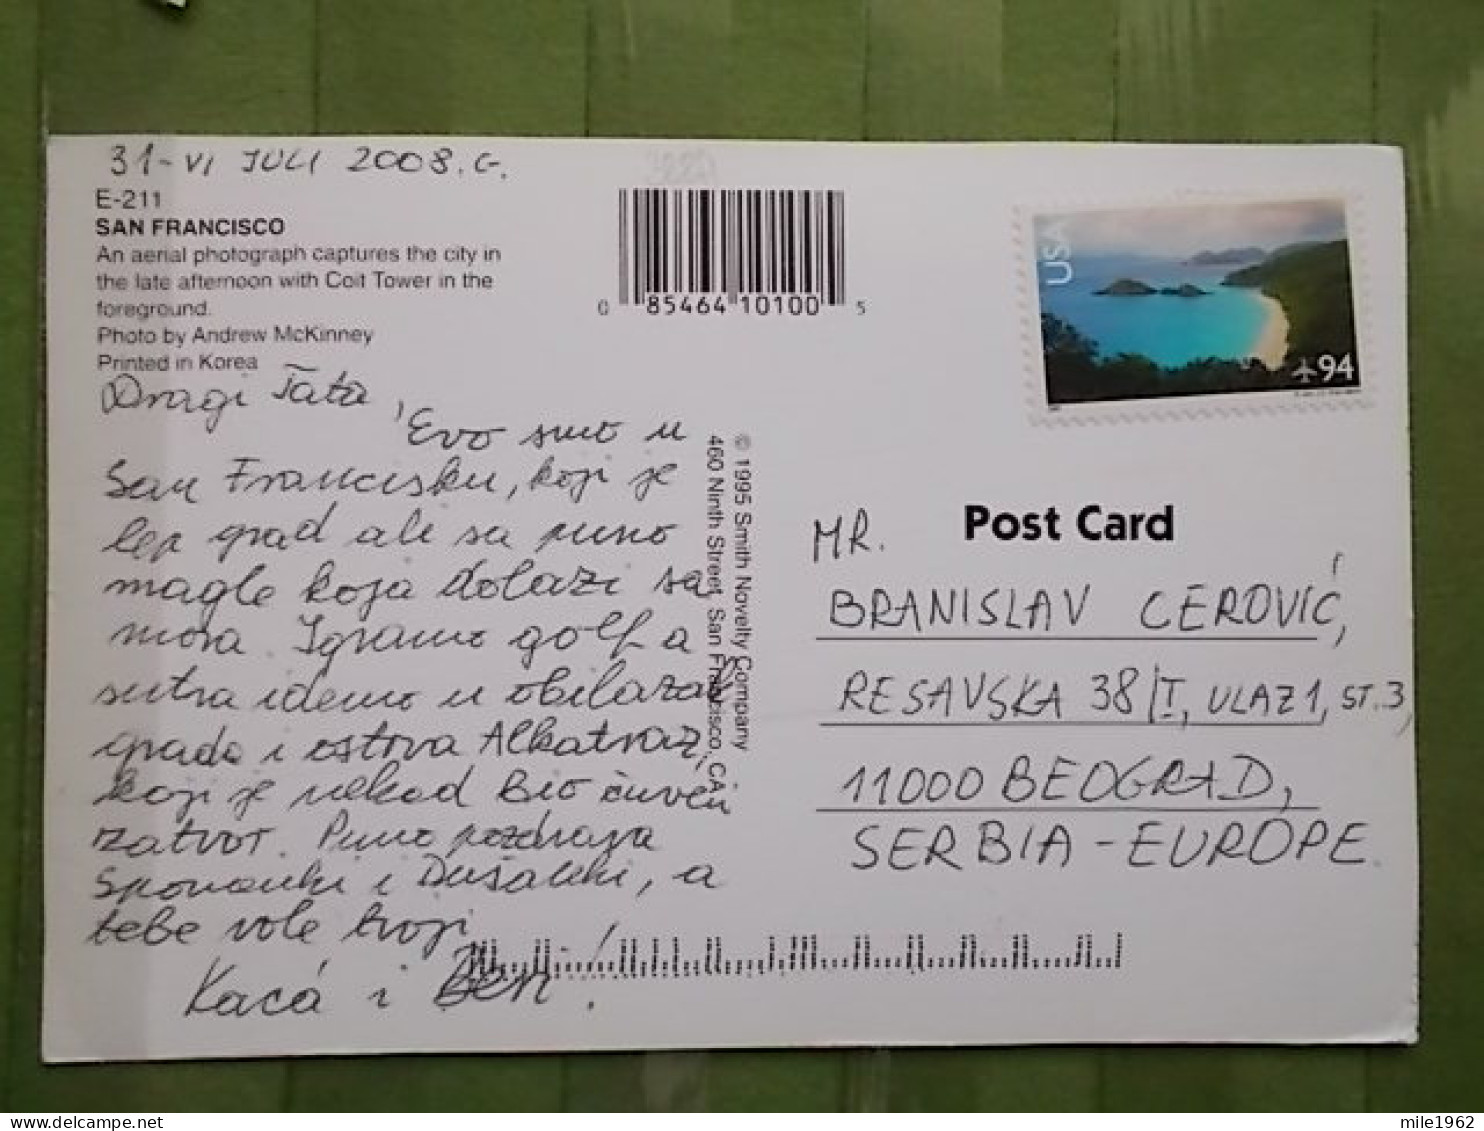 31-VI JULI 2008. G.
E-211
SAN FRANCISCO
An aerial photograph captures the city in
the late afternoon with Coit Tower in the
foreground.
Photo by Andrew McKinney
Printed in Korea
Dragi Tata,
Evo smo u
San Francisku, koji je
lep grad ali sa puno
magle koja dolazi sa
mora. Igramo golf a
sutra idemo u obilazak
grada i ostrva Alkatraz,
koji je nekad bio čuven
zatvor. Puno pozdrava
i Dušanki, a
tebe vole tvoji
Kaća i Ben!
0 85464 10100 5
© 1995 Smith Novelty Company
460 Ninth Street, San Francisco, CA
USA
94
Post Card
MR.
BRANISLAV CEROVIĆ,
RESAVSKA 38/I, ULAZ 1, ST.3,
11000 BEOGRAD,
SERBIA - EUROPE
mile1962